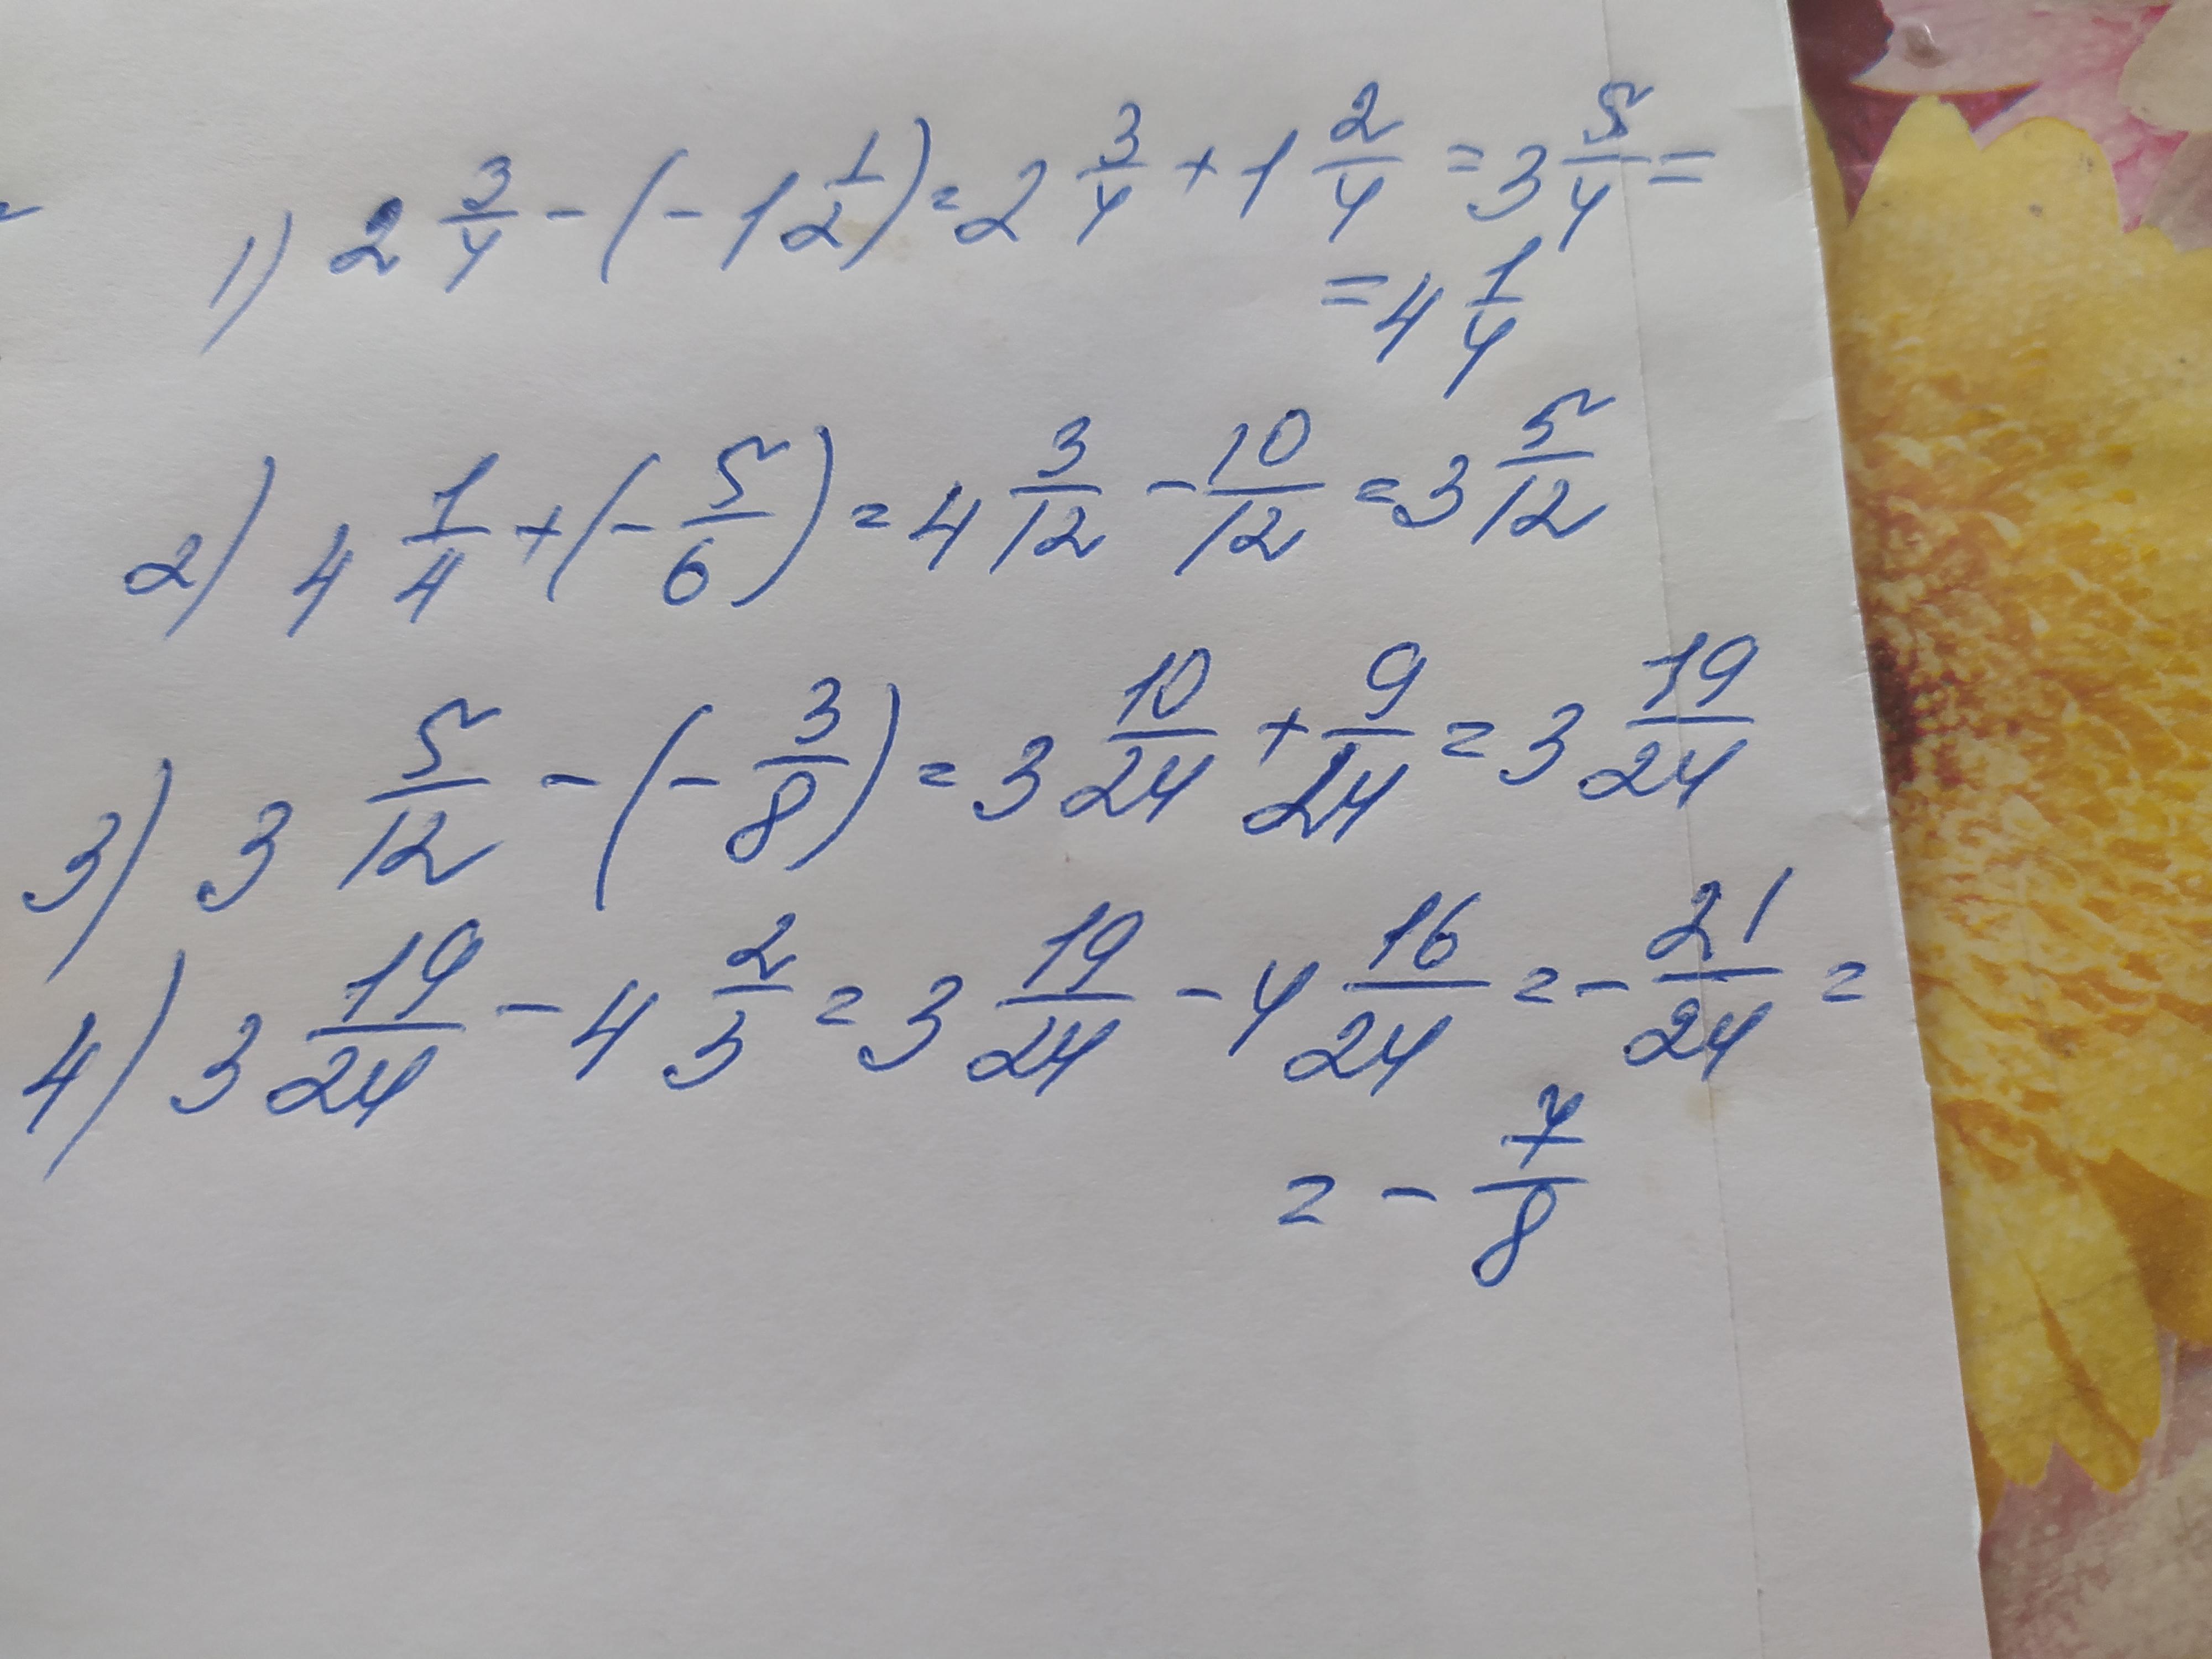 1) 2 3/4 - (-1 1/2) = 2 3/4 + 1 2/4 = 3 5/4 =
= 4 1/4
2) 4 1/4 + (- 5/6) = 4 3/12 - 10/12 = 3 5/12
3) 3 5/12 - (- 3/8) = 3 10/24 + 9/24 = 3 19/24
4) 3 19/24 - 4 2/3 = 3 19/24 - 4 16/24 = - 21/24 =
= - 7/8